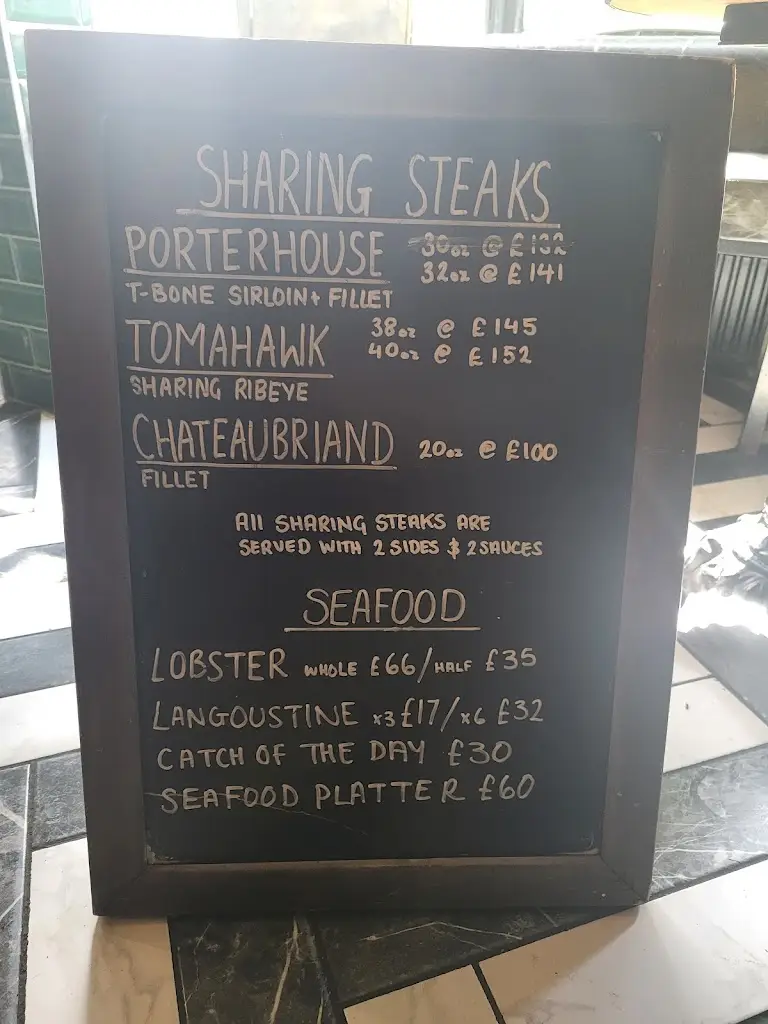 SHARING STEAKS
PORTERHOUSE 30oz @ £132
32oz @ £141
T-BONE SIRLOIN + FILLET
TOMAHAWK 38oz @ £145
40oz @ £152
SHARING RIBEYE
CHATEAUBRIAND 20oz @ £100
FILLET
All SHARING STEAKS ARE
SERVED WITH 2 SIDES $ 2 SAUCES
SEAFOOD
LOBSTER WHOLE £66/HALF £35
LANGOUSTINE x3 £17/x6 £32
CATCH OF THE DAY £30
SEAFOOD PLATTER £60